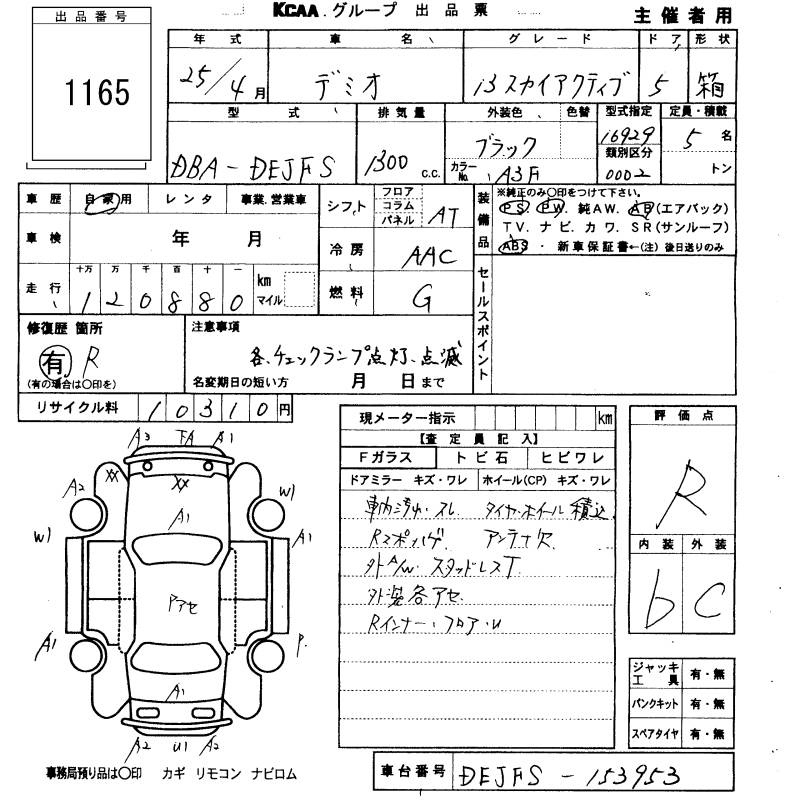 KCAA グループ 出品票
主催者用
出品番号
1165
年式 車名 グレード ドア 形状
25/4月 デミオ 13スカイアクティブ 5 箱
型式 排気量 外装色 色替 型式指定 定員・積載
DBA-DEJFS 1300 c.c. ブラック 16929 5名
カラーNo. A3F 類別区分 0002 トン
車歴 自家用 レンタ 事業.営業車
シフト フロア コラム パネル AT
装備品 ※純正のみ○印をつけて下さい。
PS. PW. 純AW. AB(エアバック)
TV. ナビ. カワ. SR(サンルーフ)
ABS・新車保証書←(注) 後日送りのみ
車検 年 月
冷房 AAC
走行 十万 万 千 百 十 一
120880 km マイル
燃料 G
セールスポイント
修復歴 箇所
有 R
(有の場合は○印を)
注意事項
各、チェックランプ点灯、点滅
名変期日の短い方 月 日まで
リサイクル料 10310円
現メーター指示 km
【査定員記入】
Fガラス トビ石 ヒビワレ
ドアミラー キズ・ワレ ホイール(CP) キズ・ワレ
車内汚れ・スレ タイヤ・ホイール積込
Rスポハゲ アンテナ欠
外A/W スタッドレスT
外装各アセ
Rインナー・フロア・U
評価点
R
内装 外装
b C
ジャッキ工具 有・無
パンクキット 有・無
スペアタイヤ 有・無
A3 下A A1
XX XX
A2 W1
A1
W1 A1
Pアセ
A1 P.
A1
A2 U1 A2
事務局預り品は○印 カギ リモコン ナビロム
車台番号 DEJFS-153953